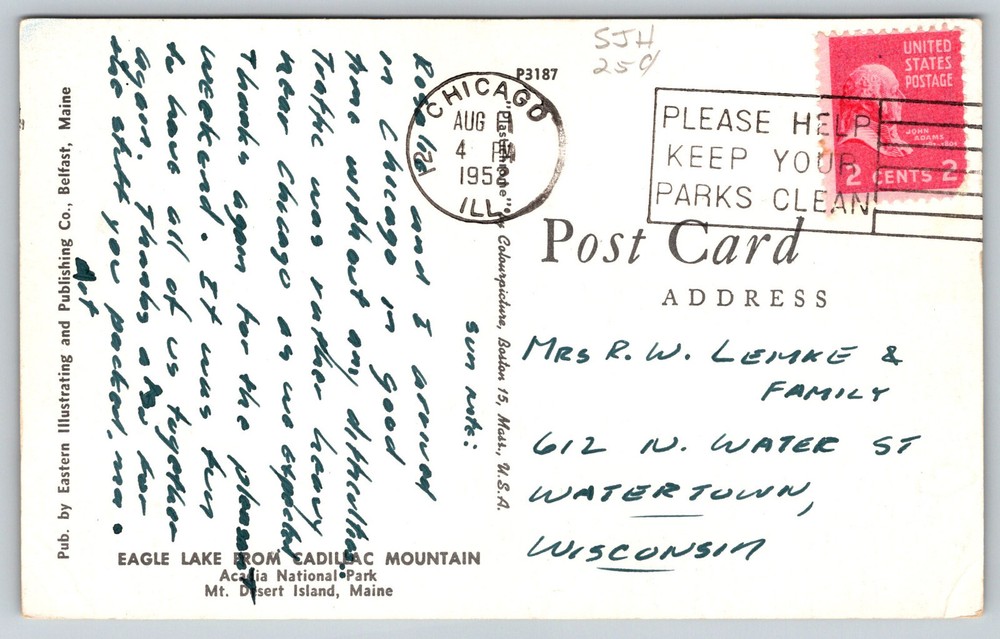 SJH
25¢
P3187
CHICAGO
AUG
4 PM
1958
ILL.
12
PLEASE HELP
KEEP YOUR
PARKS CLEAN
UNITED
STATES
POSTAGE
JOHN
ADAMS
2 CENTS 2
Post Card
ADDRESS
MRS R. W. LEMKE &
FAMILY
612 N. WATER ST
WATERTOWN,
WISCONSIN
Sun nite:
and I arrived
in Chicago in good
time without any difficulties.
Traffic was rather heavy
near Chicago as we expected
Thanks again for the pleasant
weekend. It was fun
to have all of us together
again. Thanks also for
the stuff you packed, ma.
Art
"Plastichrome" by Colourpicture, Boston 15, Mass., U.S.A.
Pub. by Eastern Illustrating and Publishing Co., Belfast, Maine
EAGLE LAKE FROM CADILLAC MOUNTAIN
Acadia National Park
Mt. Desert Island, Maine